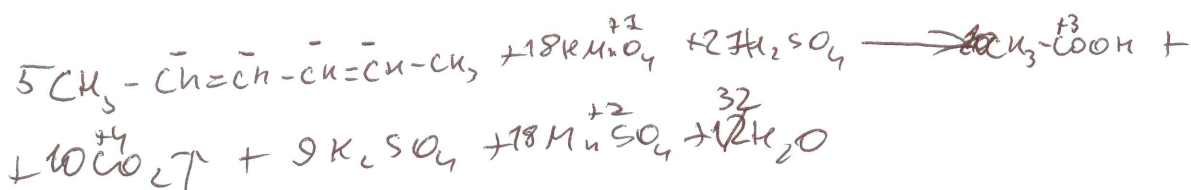 5CH₃-C̄H=C̄H-C̄H=C̄H-CH₃ +18KMn⁺⁷O₄ +27H₂SO₄ ⟶ CH₃-C⁺³OOH +
+10C⁺⁴O₂↑ + 9K₂SO₄ +18Mn⁺²SO₄ +32H₂O